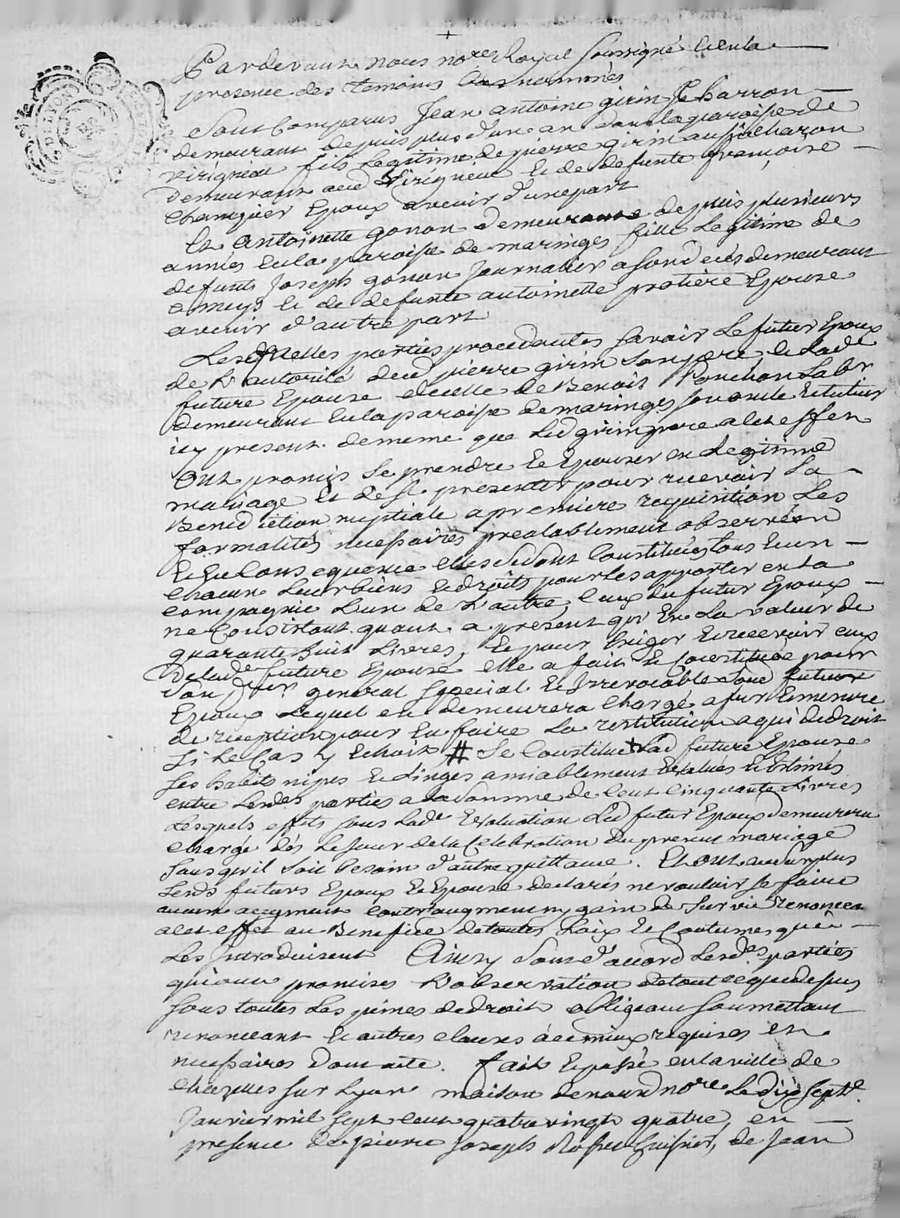 Pardevant nous nore Royal soussigné et en la
presence des temoins cy as nommés
Sont Comparus Jean antoine girin charron
demeurant depuis plus d'une an dans la paroisse de
virigneu fils Legitime de pierre girin aussi charon
demeurant aud virigneu et de defunte francoise
Epoux avenir d'une part
Et Antoinette gonon demeurante depuis plusieurs
années en la paroisse de maringes fille Legitime de
defunts Joseph gonon Journalier demeurant
a meys et de defunte antoinette protiere Epouse
avenir d'autre part
Lesquelles parties procedantes savoir Le futur Epoux
de L'autorité dud pierre girin son pere et Lade
future Epouse de celle de Benoit Ponchon Labr
demeurant en la paroisse de maringes son oncle et tuteur
icy present de meme que Led girin pere a cet effet
Ont promis se prendre et Epouser en Legitime
mariage et de se presenter pour recevoir La
Benediction nuptiale a premiere requisition Les
formalités necessaires prealablement observées
Et En Consequence elles se sont Constitués tous et un
chacun Leurs biens et droits pour les apporter en la
compagnie L'un de L'autre, ceux du futur Epoux
ne Consistant quant a present qu'En La valeur de
quarante huit Livres, et pour Exiger et recevoir ceux
de Lade future Epouse elle a fait et Constitué pour
son general special et Irrevocable Led futur
Epoux Lequel en demeurera chargé a fur et mesure
de reception pour en faire La restitution a qui de droit
si le Cas y Echoit # Se Constitue Lad future Epouse
ses habits nipes et Linges amiablement Evalués et Estimés
entre Lesdes parties a La somme de Cent cinquante Livres
Lesquels effets sous Lade Evaluation Led futur Epoux demeurera
chargé dès Le Jour de La Celebration du present mariage
sans qu'il soit besoin d'autre quittance. Et ont au surplus
Lesds futurs Epoux et Epouse declarés ne vouloir se faire
aucun augment contr'augment ny gain de survie renoncer
a cet effet au Benefice de toutes Loix et Coutumes qui
Les Introduisent Ainsy Sont d'accord Lesdes parties
qui ont promises L'observation de tout ce que dessus
sous toutes Les peines de droit obligeant soumettant
renonceant et autres clauses a ce mieux requises et
necessaires Dont acte. fait et passé en la ville de
Chazelles sur Lyon maison de nousd nore Le dix Sept
Janvier mil sept cent quatre vingt quatre, en
presence de pierre Joseph huissier, de Jean